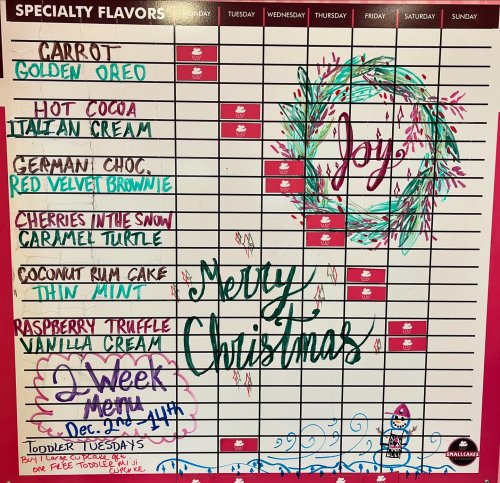 SPECIALTY FLAVORS MONDAY TUESDAY WEDNESDAY THURSDAY FRIDAY SATURDAY SUNDAY
CARROT
GOLDEN OREO
HOT COCOA
ITALIAN CREAM
Joy
GERMAN CHOC.
RED VELVET BROWNIE
CHERRIES IN THE SNOW
CARAMEL TURTLE
COCONUT RUM CAKE
THIN MINT
Merry
Christmas
RASPBERRY TRUFFLE
VANILLA CREAM
2 Week
Menu
Dec. 2nd - 14th
TODDLER TUESDAYS
Buy 1 Large Cupcake get
one FREE TODDLER mini
CUPCAKE
SMALLCAKES